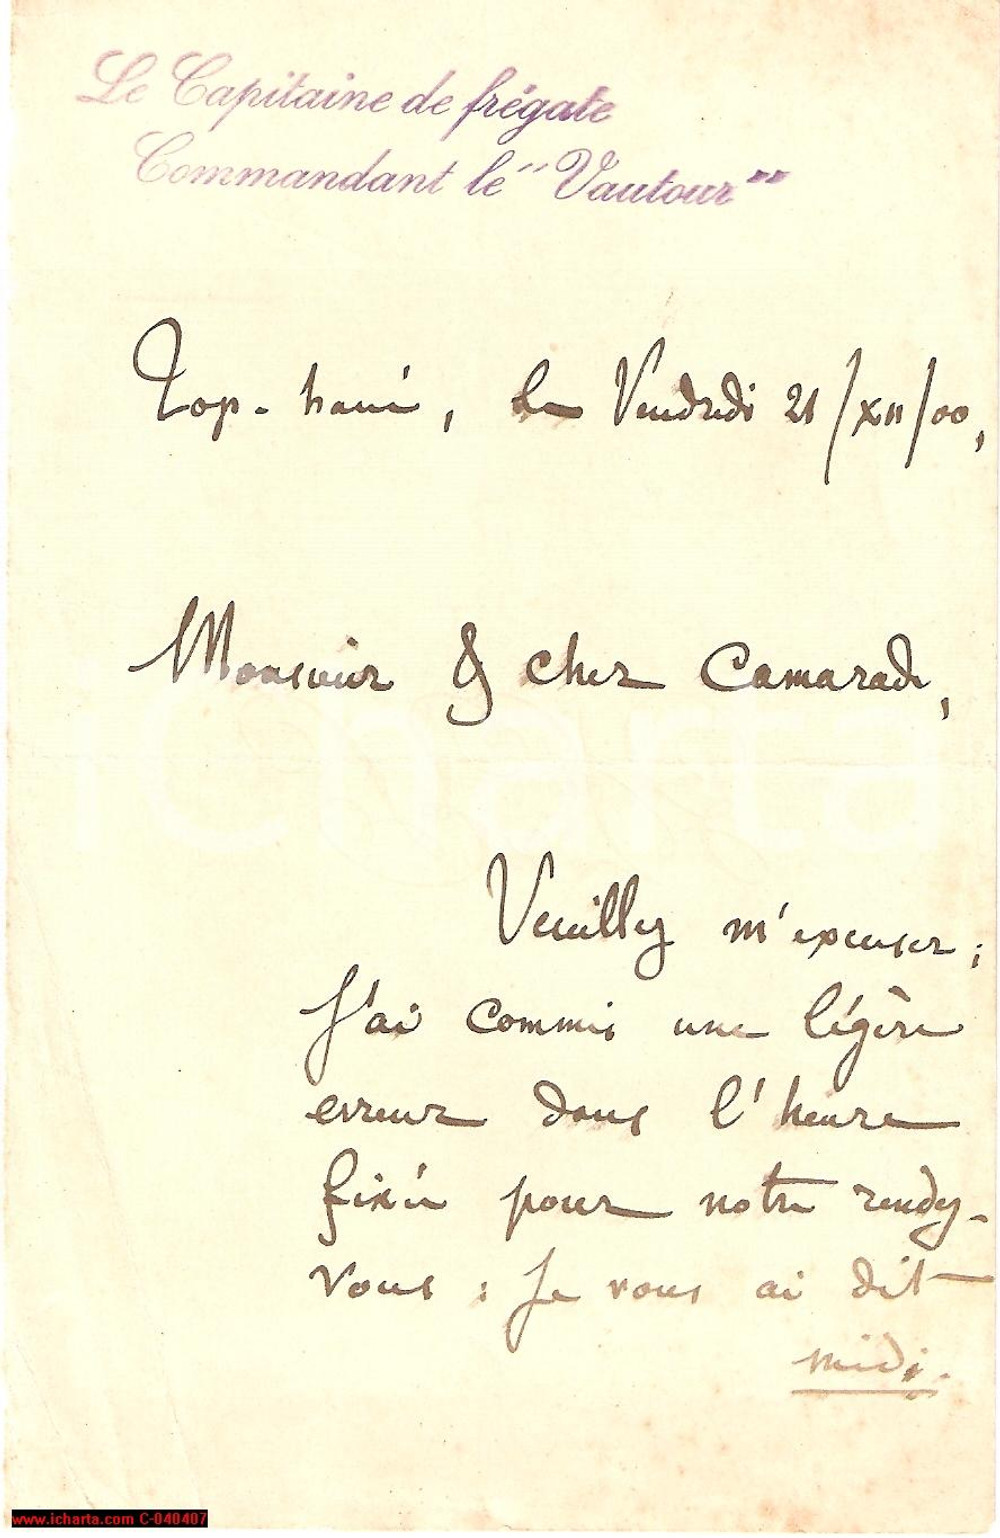 Le Capitaine de frégate
Commandant le "Vautour"
Top-hané, le Vendredi 21/XII/00,
Monsieur & cher Camarade,
Veuillez m'excuser;
J'ai commis une légère
erreur dans l'heure
fixée pour notre rendez-
vous : Je vous ai dit
midi.
icharta
www.icharta.com C-040407